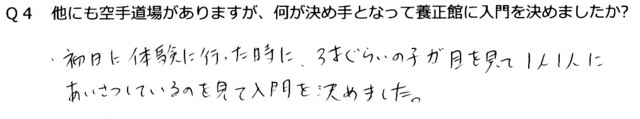 Q4 他にも空手道場がありますが、何が決め手となって養正館に入門を決めましたか?
・初日に体験に行った時に、3才ぐらいの子が目を見て1人1人に
あいさつしているのを見て入門を決めました。